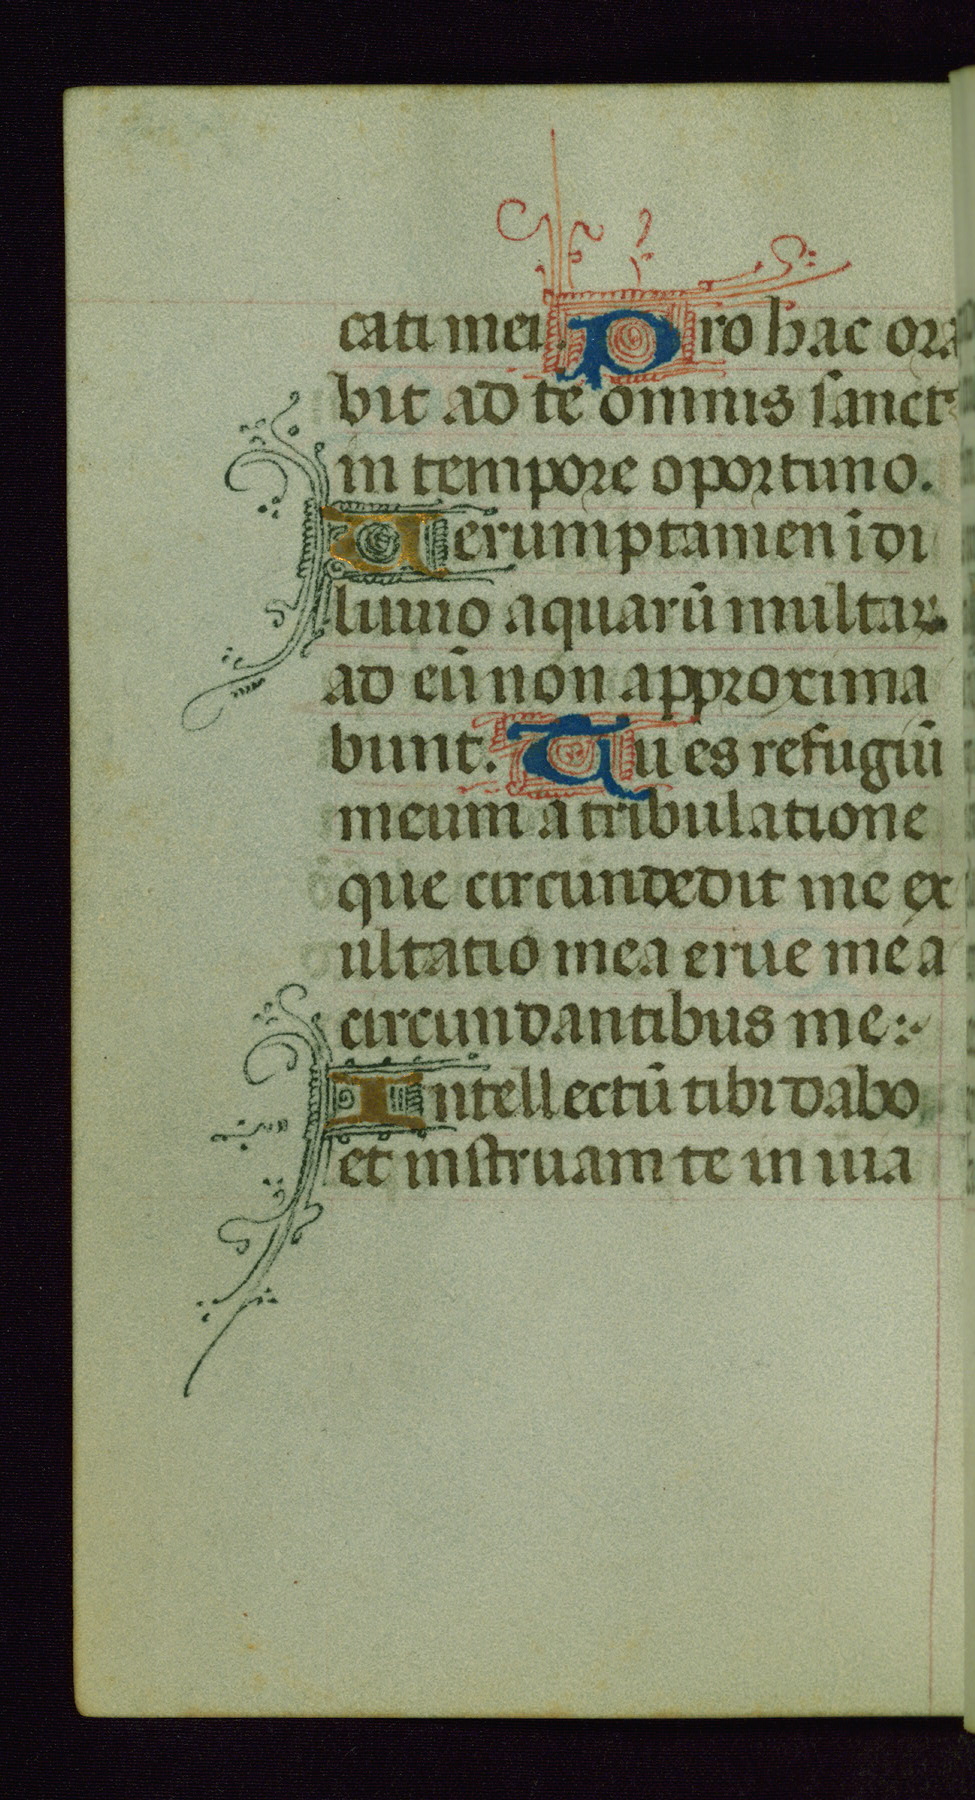 cati mei. Pro hac ora
bit ad te omnis sanctꝰ
in tempore oportuno.
Verumptamen i di
luuio aquarū multaꝝ
ad eū non approxima
bunt. Tu es refugiū
meum a tribulatione
que circundedit me ex
ultatio mea erue me a
circundantibus me:
Intellectū tibi dabo
et instruam te in uia